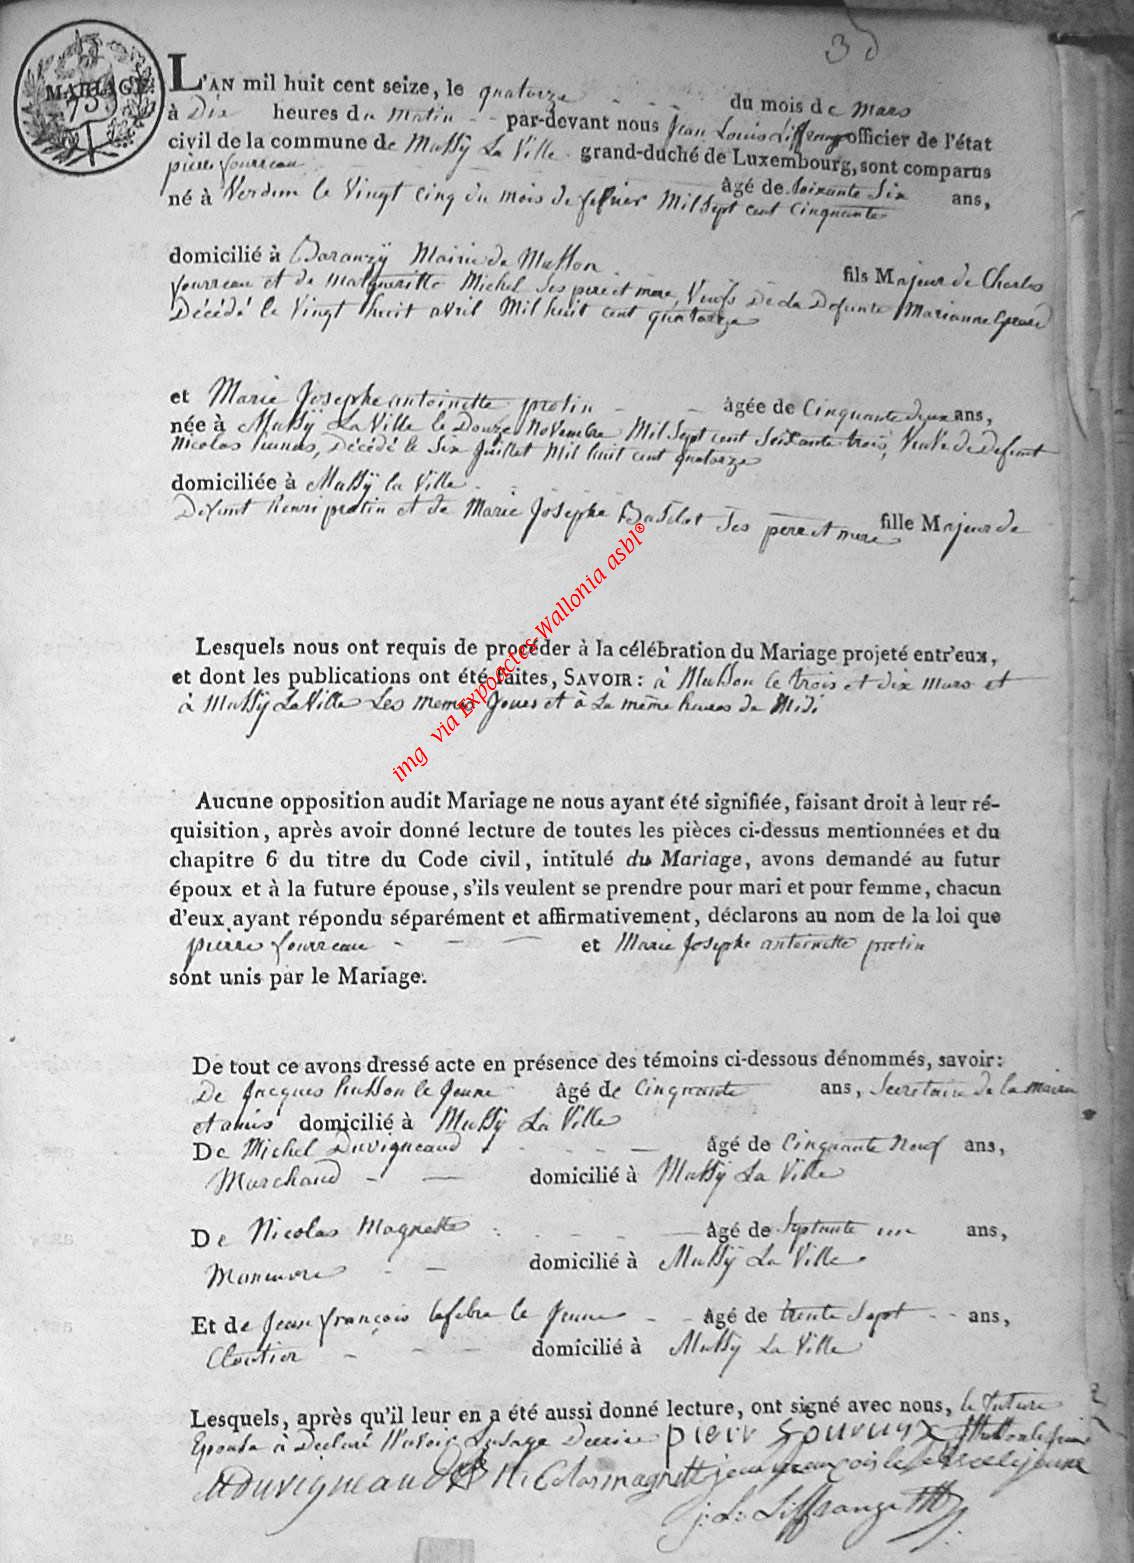 3
MARIAGE
L'AN mil huit cent seize, le quatorze du mois de mars
à Dix heures du matin par-devant nous Jean Louis Liffrange officier de l'état
civil de la commune de Mussÿ La Ville grand-duché de Luxembourg, sont comparus
pierre fourreau âgé de Soixante Six ans,
né à Verdun le Vingt cinq du mois de fevrier Mil Sept cent cinquante
domicilié à Baranzÿ Mairie de Musson fils Majeur de Charles
fourreau et de Margueritte Michel Ses pere et mere, Veufs De La Defunte Marianne
Décédé le Vingt huit avril Mil huit cent quatorze
et Marie Josephe antoinette protin âgée de Cinquante deux ans,
née à Mussÿ La Ville le Douze Novembre Mil Sept cent Soixante trois, Veuve de Defunt
Nicolas Décédé le Six Juillet Mil huit cent quatorze
domiciliée à Mussÿ la Ville
Defunt henri protin et de Marie Josephe Ses pere et mere fille Majeur de
Lesquels nous ont requis de procéder à la célébration du Mariage projeté entr'eux,
et dont les publications ont été faites, SAVOIR : à Musson le trois et dix Mars et
à Mussÿ La Ville Les memes Jours et à La même heures de Midi
Aucune opposition audit Mariage ne nous ayant été signifiée, faisant droit à leur ré-
quisition, après avoir donné lecture de toutes les pièces ci-dessus mentionnées et du
chapitre 6 du titre du Code civil, intitulé du Mariage, avons demandé au futur
époux et à la future épouse, s'ils veulent se prendre pour mari et pour femme, chacun
d'eux ayant répondu séparément et affirmativement, déclarons au nom de la loi que
pierre fourreau et Marie Josephe antoinette protin
sont unis par le Mariage.
De tout ce avons dressé acte en présence des témoins ci-dessous dénommés, savoir :
De Jacques husson le Jeune âgé de Cinquante ans, Secretaire de la Mairie
et amis domicilié à Mussÿ La Ville
De Michel Duvigneaud âgé de Cinquante Neuf ans,
Marchand domicilié à Mussÿ La Ville
De Nicolas Magnette âgé de Septante un ans,
Maneuvre domicilié à Mussÿ La Ville
Et de Jean françois lefebre le Jeune âgé de trente Sept ans,
Cloutier domicilié à Mussÿ La Ville
Lesquels, après qu'il leur en a été aussi donné lecture, ont signé avec nous, la future
Epouse à Declaré
MDuvigneaud NiColas magnette jean françois le jeune
j: L: Liffrange
img via Expoactes Wallonia asbl®